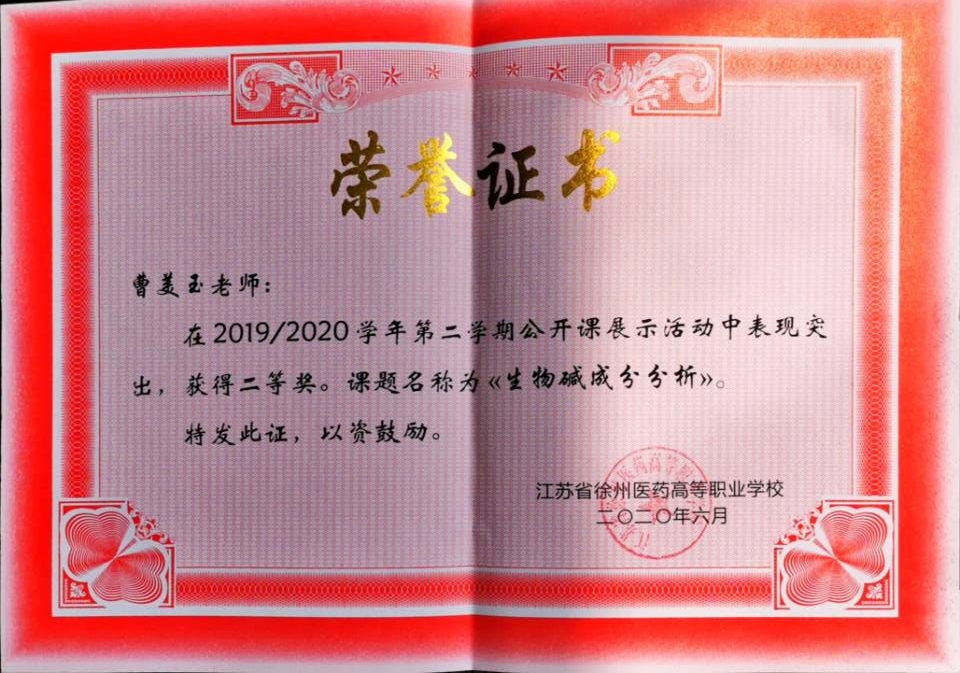 荣誉证书
曹美玉老师：
在2019/2020学年第二学期公开课展示活动中表现突
出，获得二等奖。课题名称为《生物碱成分分析》。
特发此证，以资鼓励。
江苏省徐州医药高等职业学校
二〇二〇年六月